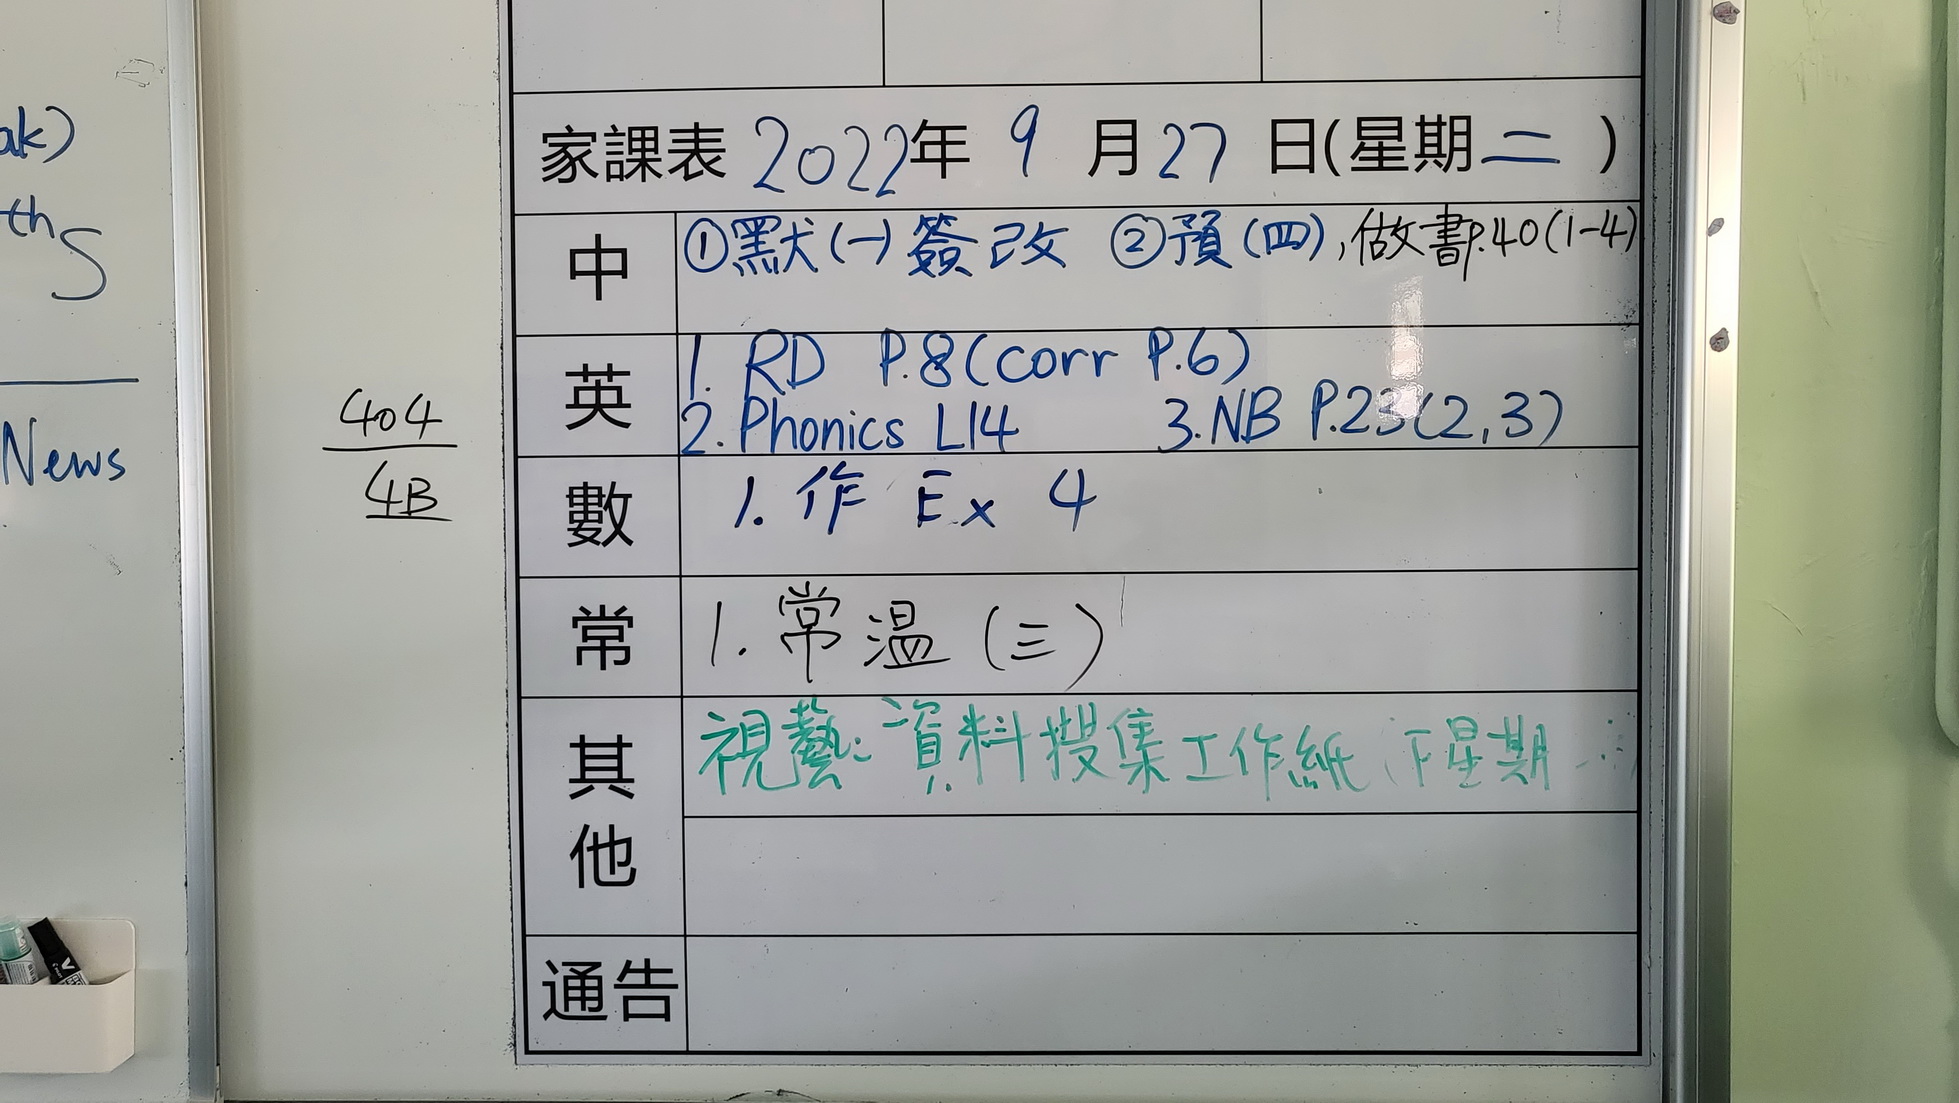 ak)
ths
News
404
4B
家課表 2022年 9 月 27 日(星期二)
中 ①默(一)簽改 ②預(四),做書P.40(1-4)
英 1. RD P.8(corr P.6)
2. Phonics L14 3. NB P.23(2,3)
數 1. 作 Ex 4
常 1. 常温(三)
其他 視藝:資料搜集工作紙(下星期
通告